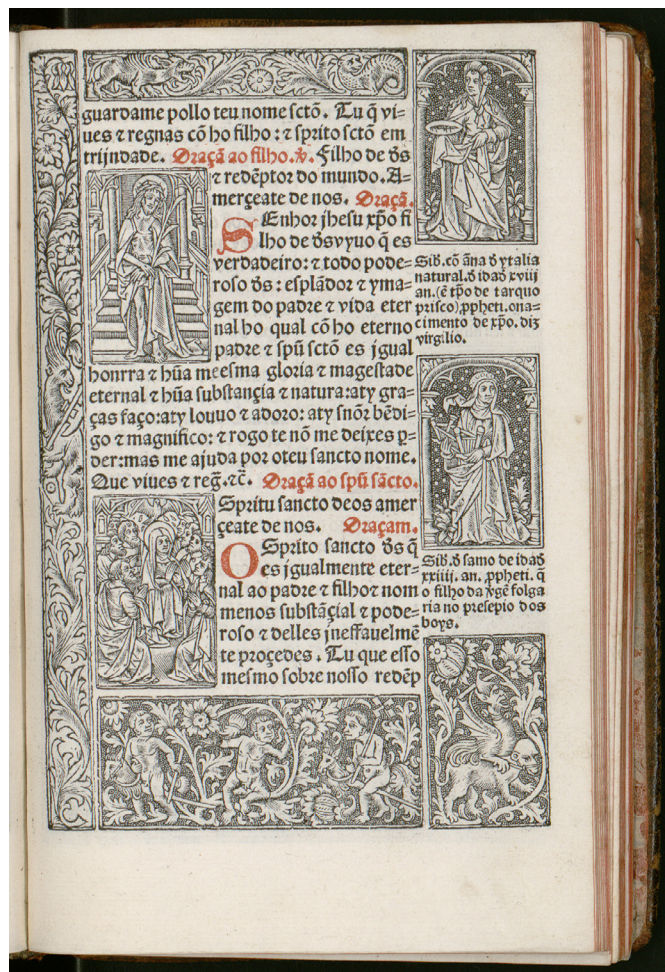 guardame pollo teu nome sctõ. Tu q̃ vi-
ues ⁊ regnas cõ ho filho: ⁊ sprito sctõ em
trijndade. Oraçã ao filho. ꝟ. Filho de d̃s
⁊ redẽptor do mundo. A-
merçeate de nos. Oraçã.
SEnhor jhesu xp̃o fi
lho de d̃s vyuo q̃ es
verdadeiro: ⁊ todo pode-
roso d̃s: esplãdor ⁊ yma-
gem do padre ⁊ vida eter
nal ho qual cõ ho eterno
padre ⁊ spũ sctõ es jgual
honrra ⁊ hũa meesma gloria ⁊ magestade
eternal ⁊ hũa substançia ⁊ natura: aty gra-
ças faço: aty louuo ⁊ adoro: aty snõr bẽdi-
go ⁊ magnifico: ⁊ rogo te nõ me deixes ꝑ-
der: mas me ajuda por oteu sancto nome.
Que viues ⁊ reg̃. ⁊c̃. Oraçã ao spũ sãcto.
Spritu sancto deos amer
çeate de nos. Oraçam.
O Sprito sancto d̃s q̃
es jgualmente eter-
nal ao padre ⁊ filho ⁊ nom
menos substãçial ⁊ pode-
roso ⁊ delles jneffauelmẽ
te proçedes. Tu que esso
mesmo sobre nosso redẽp
Sib. cõ ãna d̃ ytalia
natural. d̃ idad xviij
an. (ẽ tp̃o de tarquo
prisco) ꝓpheti. o na-
cimento de xp̃o. diz
virgilio.
Sib. d̃ samo de idad
xxiiii. an. ꝓpheti. q̃
o filho da ṽgẽ folga
ria no presepio dos
boys.